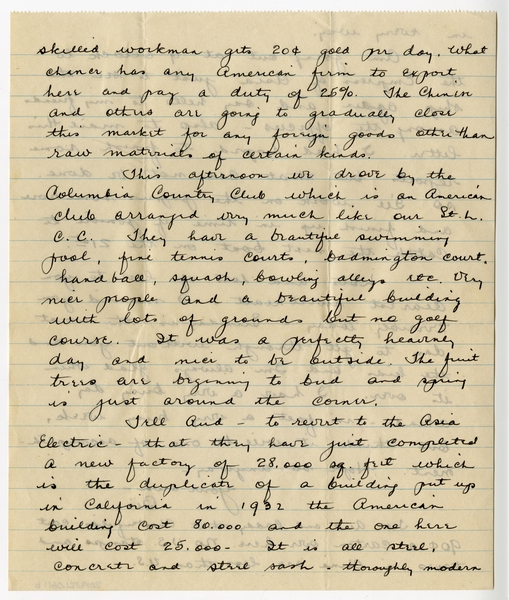 skilled workman gets 20¢ gold per day. What
chance has any American firm to export
here and pay a duty of 25%. The Chinese
and others are going to gradually close
this market for any foreign goods other than
raw materials of certain kinds.
This afternoon we drove by the
Columbia Country Club which is an American
club arranged very much like our St. L.
C. C. They have a beautiful swimming
pool, fine tennis courts, badmington court,
hand ball, squash, bowling alleys etc. Very
nice people and a beautiful building
with lots of grounds but no golf
course. It was a perfectly heavenly
day and nice to be outside. The fruit
trees are beginning to bud and spring
is just around the corner.
Tell Aud - to revert to the Asia
Electric - that they have just completed
a new factory of 28,000 sq feet which
is the duplicate of a building put up
in California in 1932 the American
building cost 80.000 and the one here
will cost 25.000 - It is all steel,
concrete and steel sash - thoroughly modern